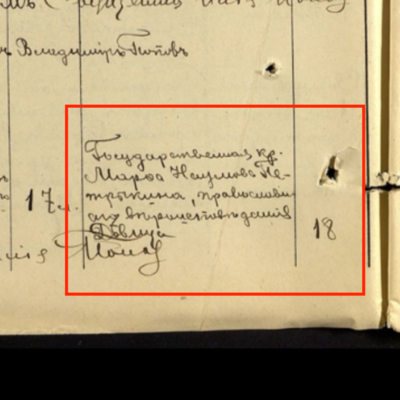 Владиміръ Поповъ
Государственная кр.
Марѳа Наумова Пе-
трыкина, православн
аго вѣроисповѣданія
Дѣвица
17 л.
18